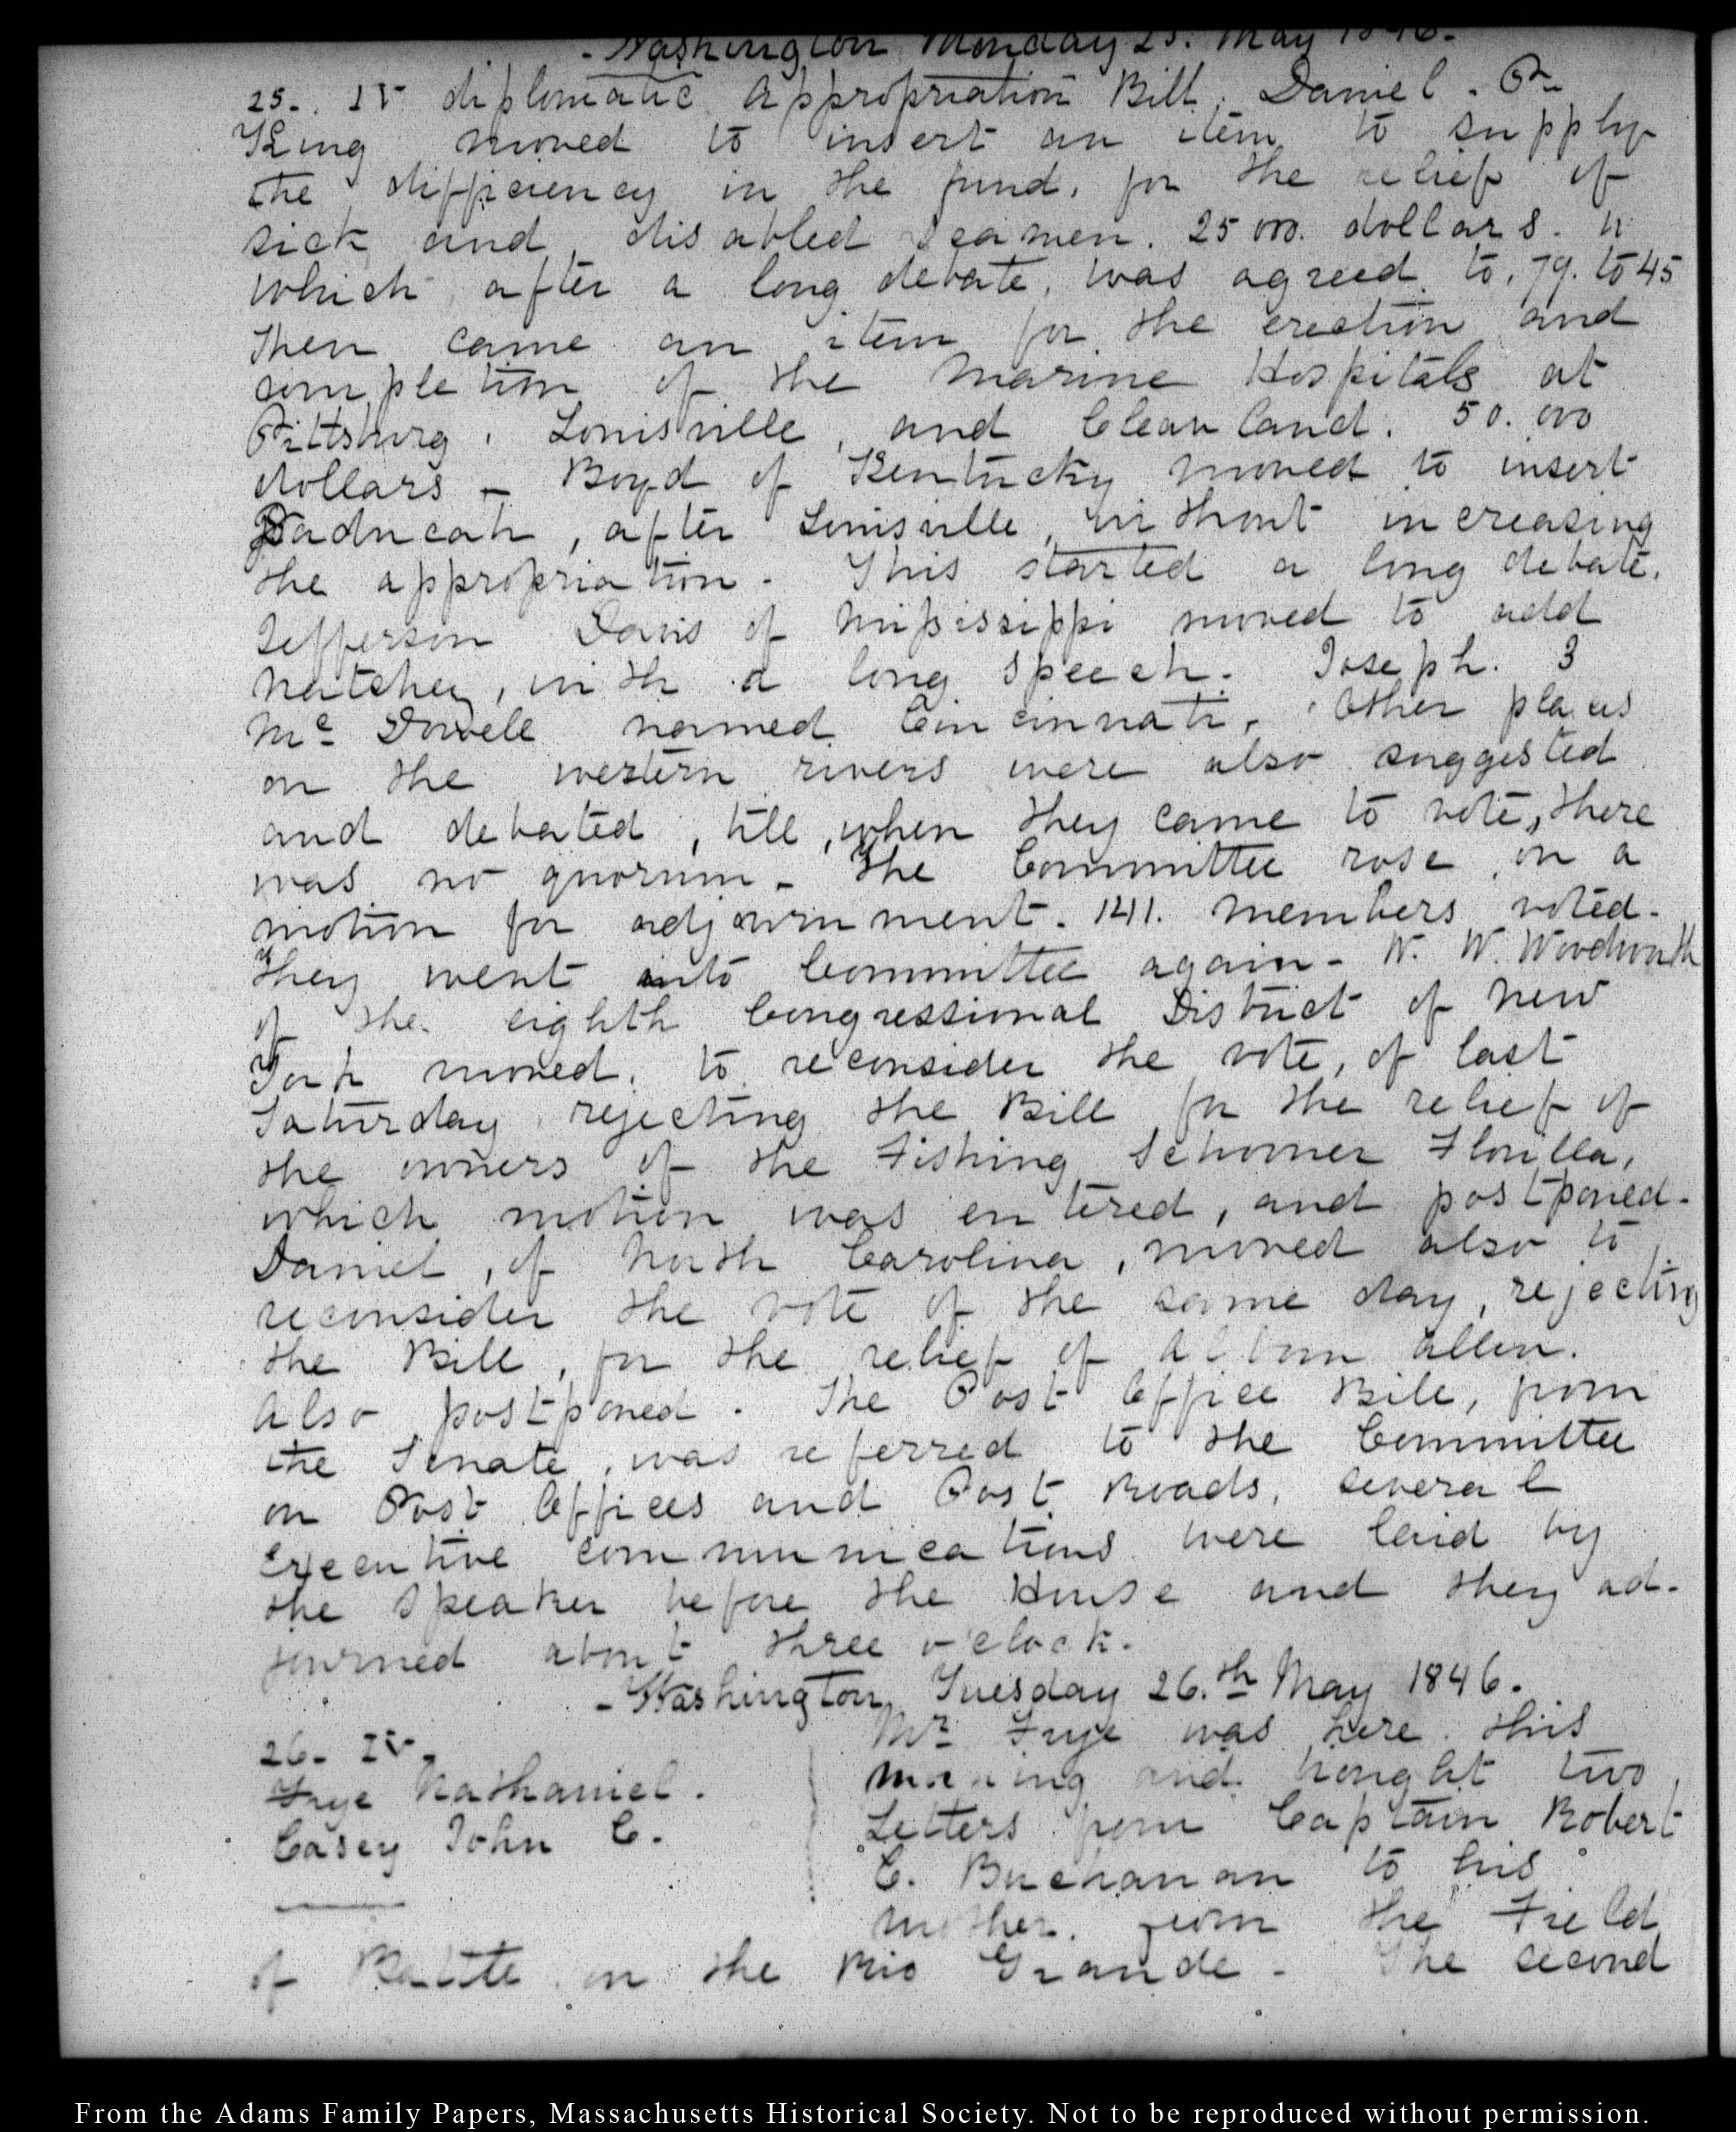 - Washington Monday 25. May 1846 -
25. IV diplomatic Appropriation Bill. Daniel. P.
King moved to insert an item to supply
the difficiency in the fund, for the relief of
sick and disabled Seamen. 25000. dollars.
which after a long debate, was agreed to. 79. to 45
Then came an item for the erection and
completion of the Marine Hospitals at
Pittsburg, Louisville, and Cleaveland. 50.000
dollars - Boyd of Kentucky moved to insert
Paducah, after Louisville, without increasing
the appropriation. This started a long debate.
Jefferson Davis of Missisippi moved to add
Natchez, with a long Speech. Joseph. J
Mc. Dowell named Cincinnati, Other places
on the western rivers were also suggested
and debated, till, when they came to vote, there
was no quorum - The Committee rose, on a
motion for adjournment. 141. members voted.
They went into Committee again - W. W. Woodworth
of the eighth Congressional District of New
York moved. to reconsider the vote, of last
Saturday rejecting the Bill for the relief of
the owners of the Fishing Schooner Florilla,
which motion was entered, and postponed.
Daniel, of North Carolina, moved also to
reconsider the vote of the same day, rejecting
the Bill, for the relief of Allen.
Also postponed. The Post Office Bill, from
the Senate, was referred to the Committee
on Post Offices and Post Roads, several
Executive communications were laid by
the Speaker before the House and they ad-
journed about three o'clock.
- Washington, Tuesday 26.th May 1846.
26. IV.
Frye Nathaniel.
Casey John C.
Mr. Frye was here this
morning and brought two
Letters from Captain Robert
C. Buchanan to his
mother. from the Field
of Battle on the Rio Grande - The second
From the Adams Family Papers, Massachusetts Historical Society. Not to be reproduced without permission.